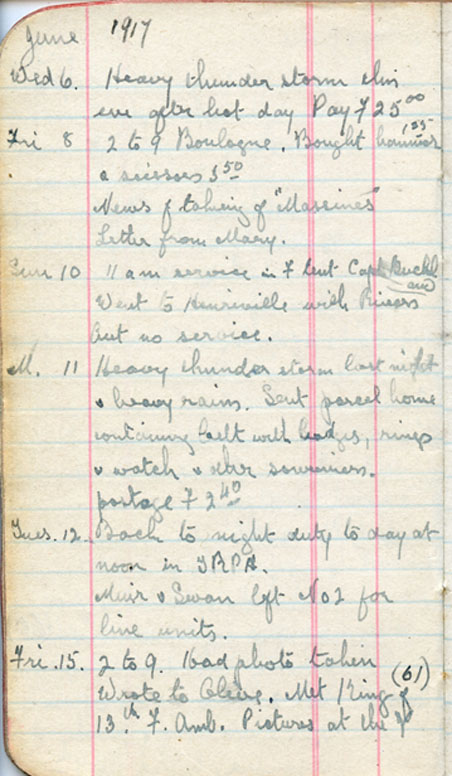 June 1917
Wed 6. Heavy thunder storm this
eve after hot day Pay F 25 00
Fri 8 2 to 9 Boulogne. Bought hammer 1 25
& scissors 3 50
News of taking of "Messines"
Letter from Mary.
Sun 10 11 am service in F tent Capt.
Went to Henriville with Rivers and
but no service.
M. 11 Heavy thunder storm last night
& heavy rains. Sent parcel home
containing belt with badges, rings
& watch & other souviniers.
postage F 2 40
Tues. 12. Back to night duty to day at
noon in
Muir & Swan left No 2 for
line units.
Fri. 15. 2 to 9. Had photo taken
Wrote to Olive. Met King of (61)
13th F. Amb. Pictures at the